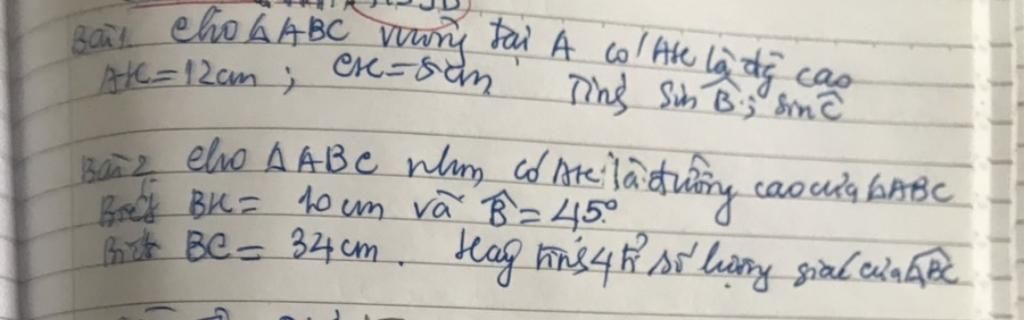 Bài 1. Cho ΔABC vuông tại A có AH là đg cao
AH = 12cm ; CH = 5cm Tính sin B̂ ; sin Ĉ
Bài 2. Cho ΔABC nhọn có AH là đường cao của ΔABC
Biết BH = 10cm và B̂ = 45°
Biết BC = 34cm. Hãy tính 4 tỉ số lượng giác của